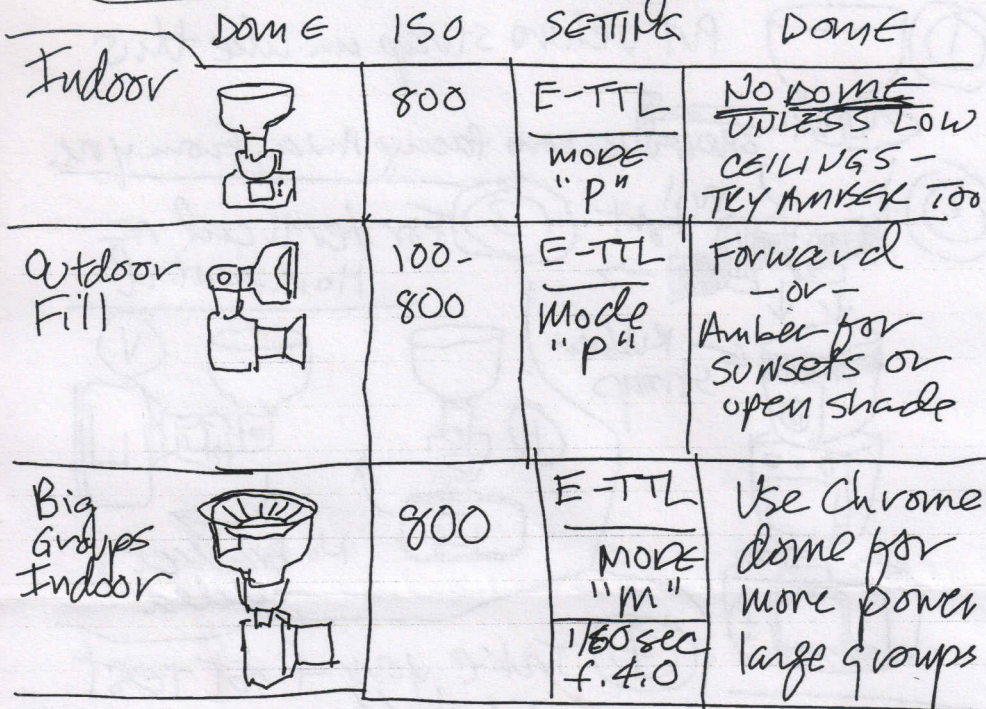 DOME ISO SETTING DOME
Indoor
800
E-TTL
MODE
"P"
NO DOME
UNLESS LOW
CEILINGS -
TRY AMBER TOO
Outdoor
Fill
100-
800
E-TTL
Mode
"P"
Forward
- or -
Amber for
SUNSETS or
open shade
Big
Groups
Indoor
800
E-TTL
MODE
"M"
1/60 sec
f.4.0
Use Chrome
dome for
more power
large groups